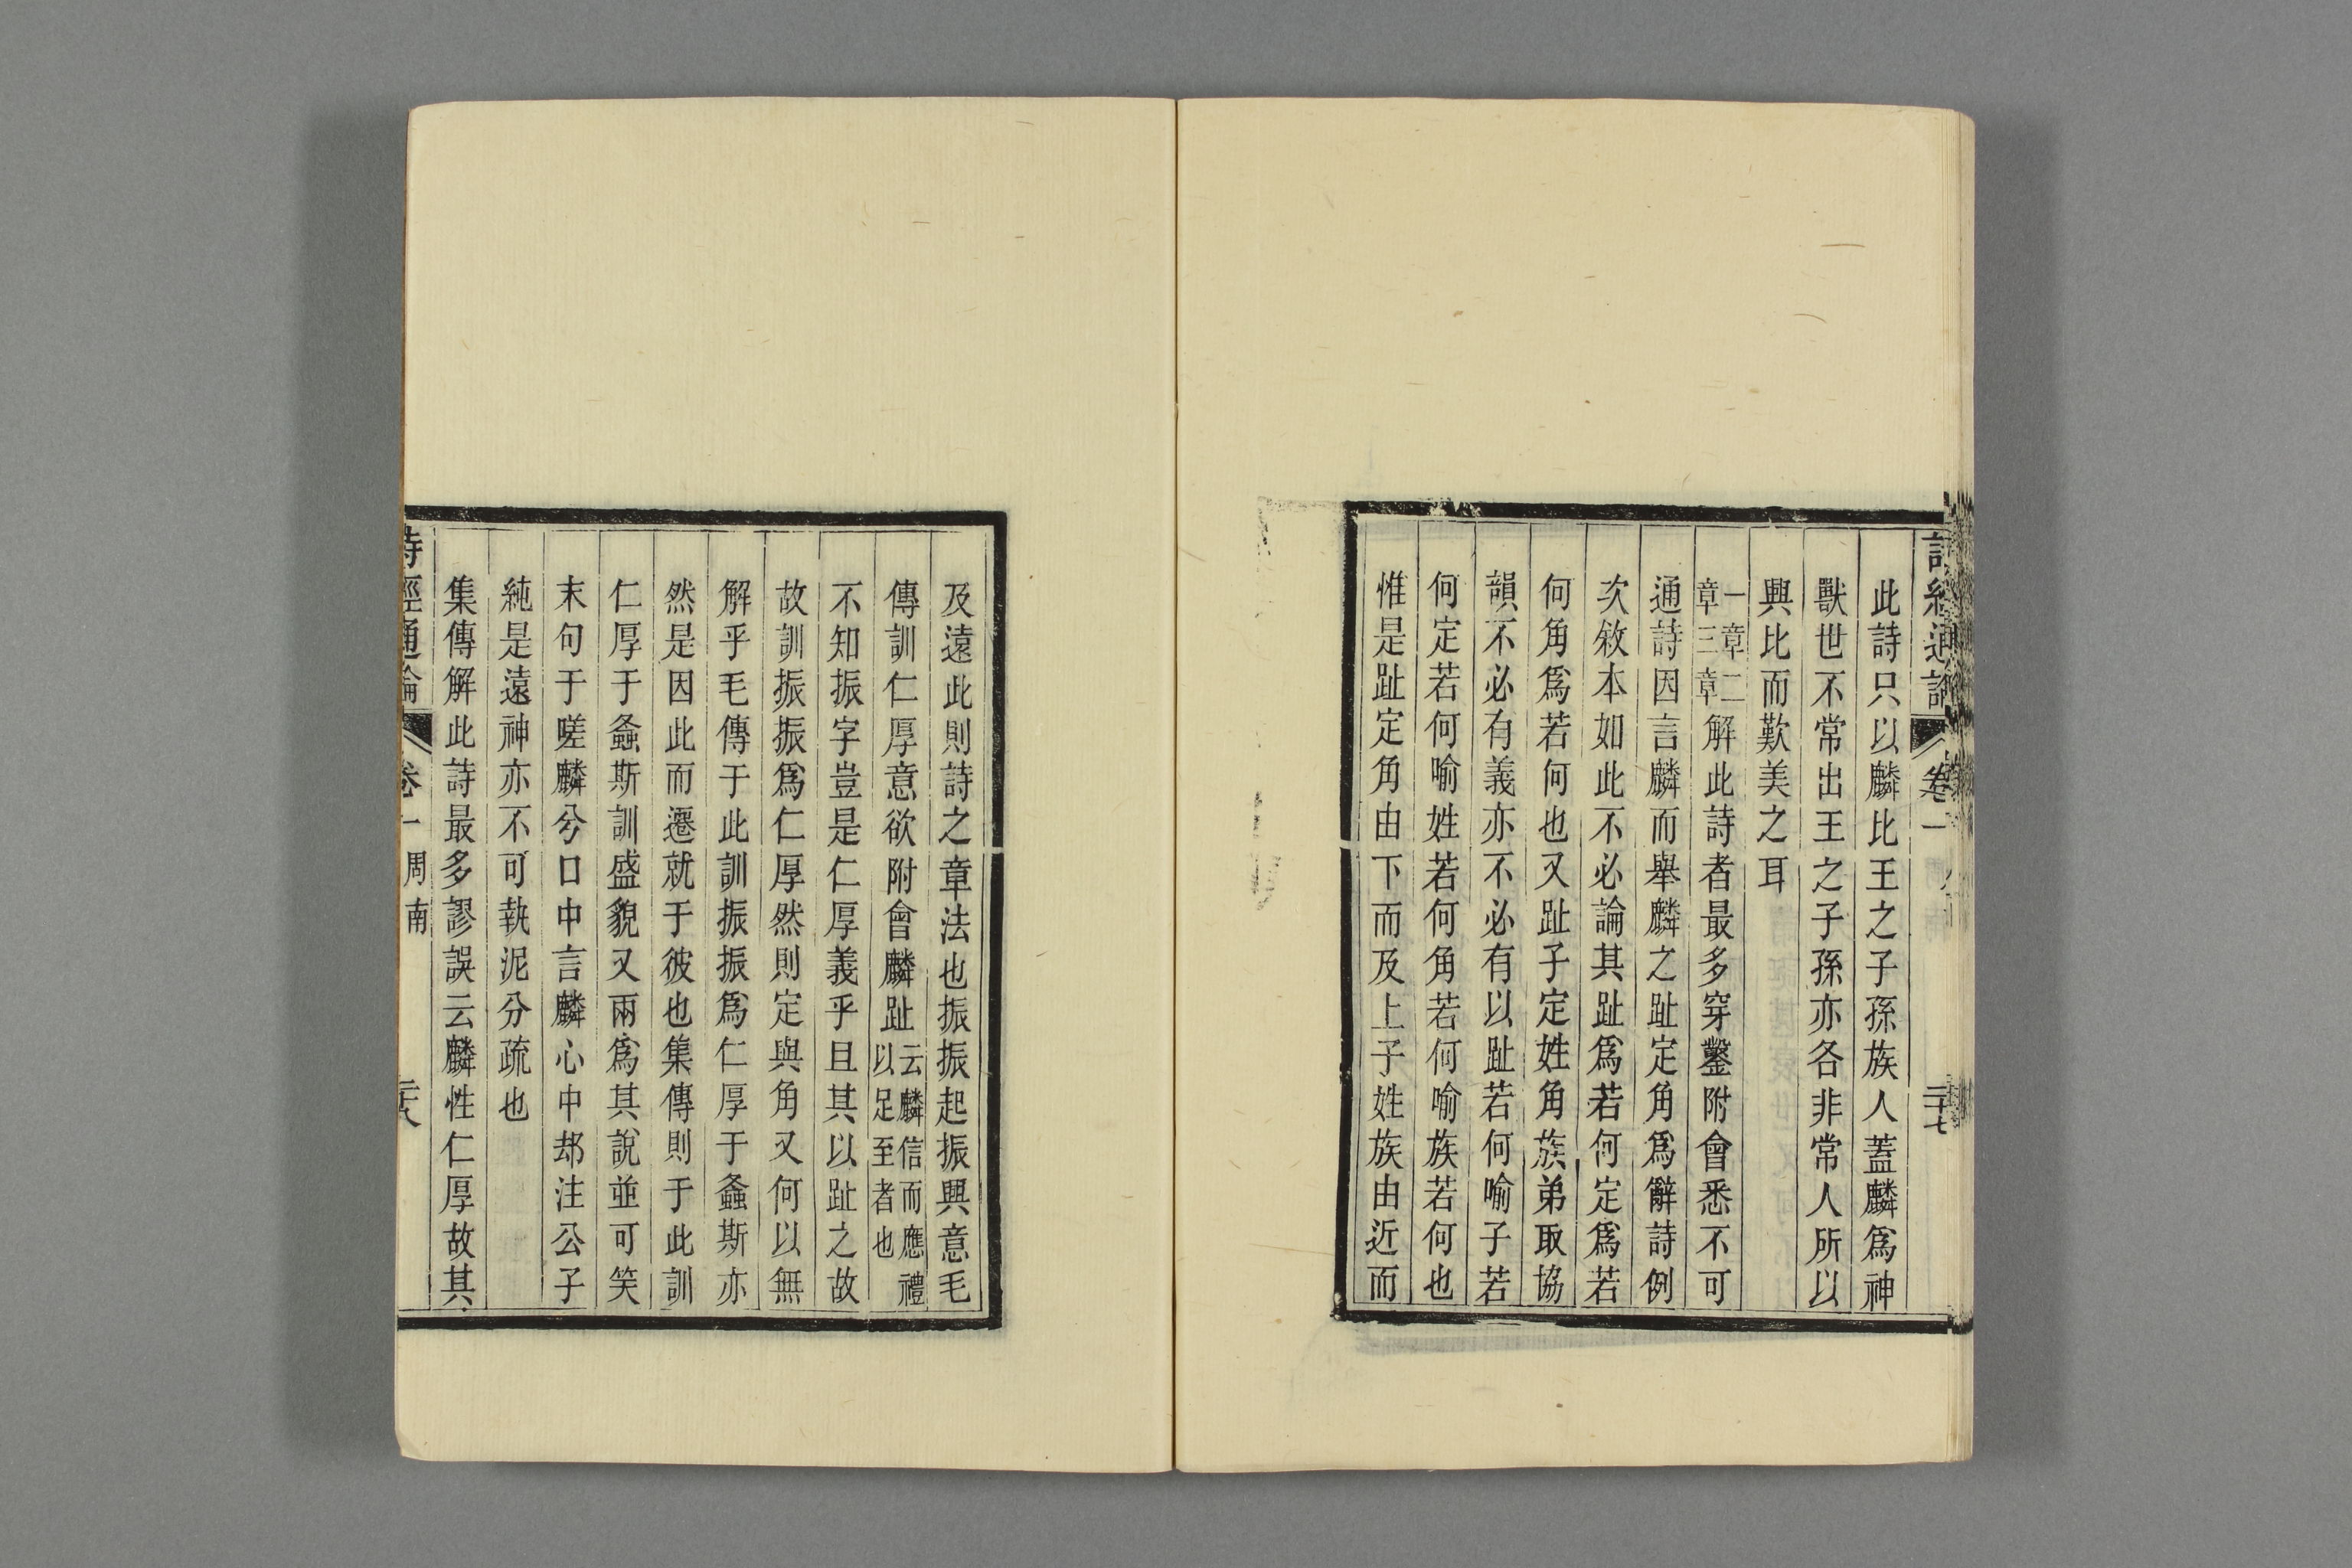 詩經通論 卷一 二十七
此詩只以麟比王之子孫族人蓋麟爲神
獸世不常出王之子孫亦各非常人所以
興比而歎美之耳
一章二章三章解此詩者最多穿鑿附會悉不可
通詩因言麟而舉麟之趾定角爲辭詩例
次敘本如此不必論其趾爲若何定爲若
何角爲若何也又趾子定姓角族弟取協
韻不必有義亦不必有以趾若何喻子若
何定若何喻姓若何角若何喻族若何也
惟是趾定角由下而及上子姓族由近而
及遠此則詩之章法也振振起振興意毛
傳訓仁厚意欲附會麟趾云麟信而應禮以足至者也
不知振字豈是仁厚義乎且其以趾之故
故訓振振爲仁厚然則定與角又何以無
解乎毛傳于此訓振振爲仁厚于螽斯亦
然是因此而遷就于彼也集傳則于此訓
仁厚于螽斯訓盛貌又兩爲其說並可笑
末句于嗟麟兮口中言麟心中却注公子
純是遠神亦不可執泥分疏也
集傳解此詩最多謬誤云麟性仁厚故其
詩經通論 卷一 周南 二十八